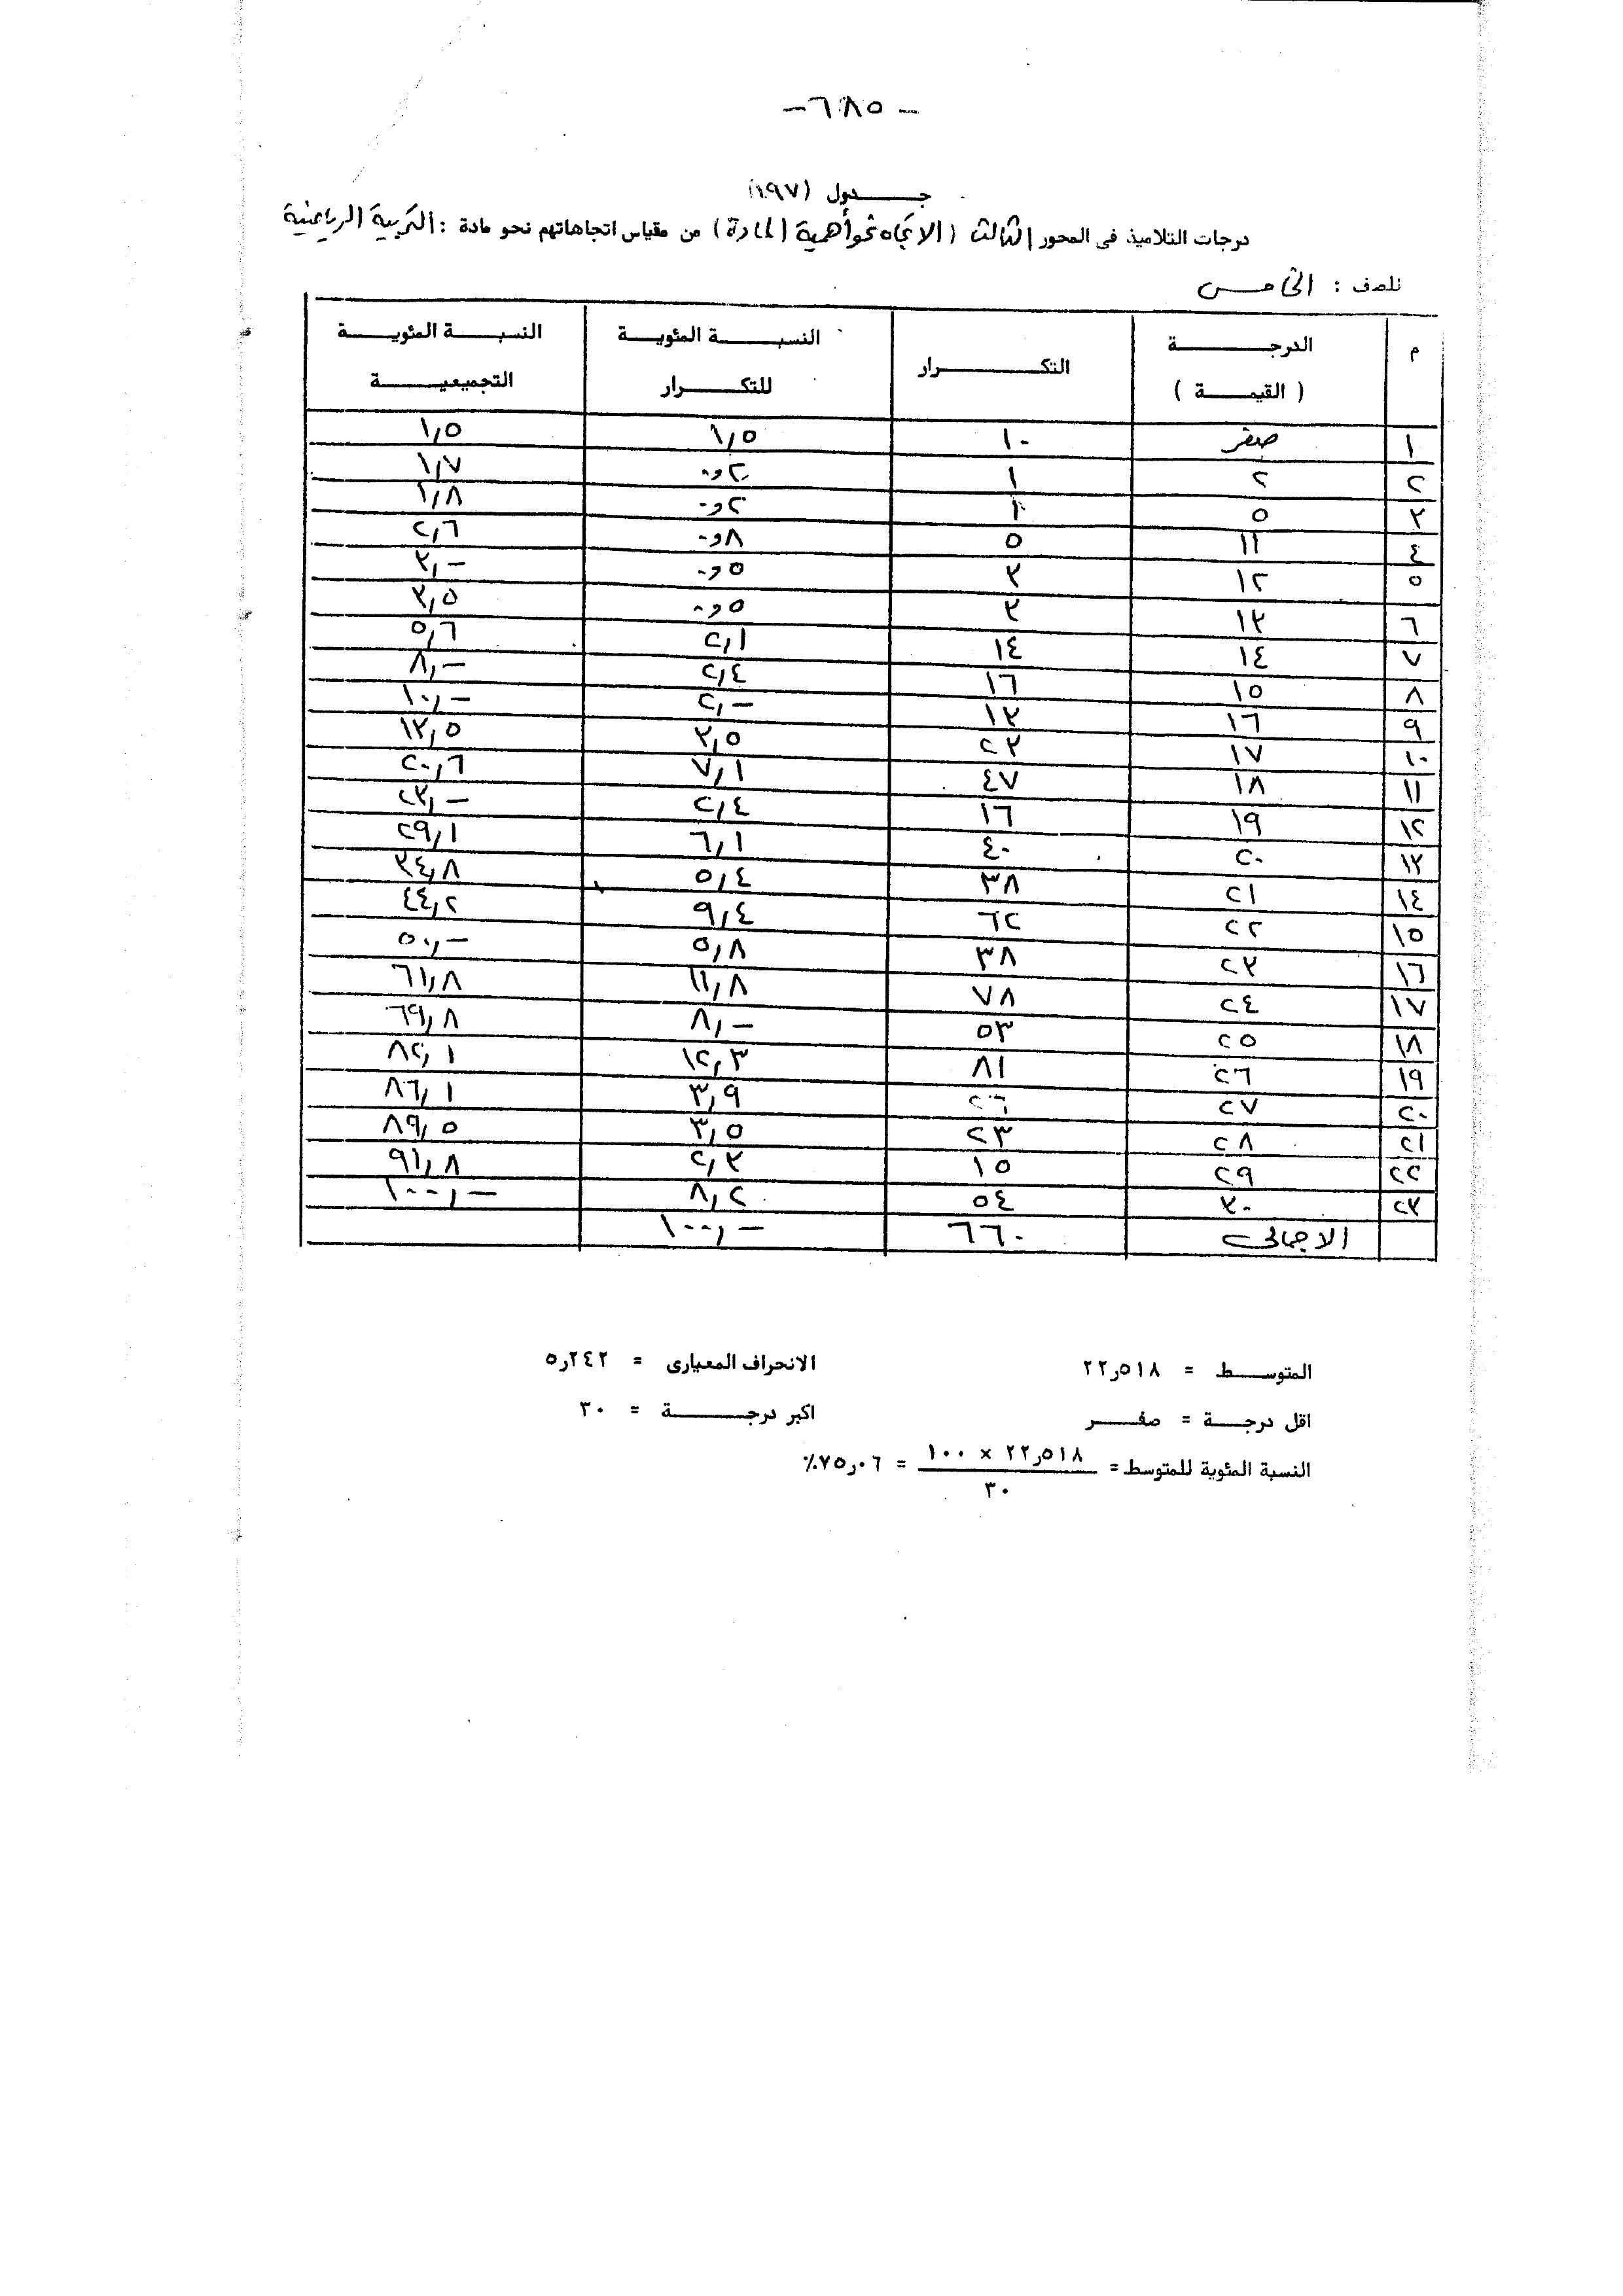 -٦٨٥-
جدول (١٩٧)
درجات التلاميذ فى المحور الثالث (الاتجاه نحو أهمية المادة) من مقياس اتجاهاتهم نحو مادة : التربية الرياضية
للصف : الخامس
م | الدرجة (القيمة) | التكرار | النسبة المئوية للتكرار | النسبة المئوية التجميعية
١ | صفر | ١٠ | ١,٥ | ١,٥
٢ | ٢ | ١ | ٢و٠ | ١,٧
٣ | ٥ | ١ | ٢و٠ | ١,٨
٤ | ١١ | ٥ | ٨و٠ | ٢,٦
٥ | ١٢ | ٣ | ٥و٠ | ٣,-
٦ | ١٣ | ٣ | ٥و٠ | ٣,٥
٧ | ١٤ | ١٤ | ٢,١ | ٥,٦
٨ | ١٥ | ١٦ | ٢,٤ | ٨,-
٩ | ١٦ | ١٣ | ٢,- | ١٠,-
١٠ | ١٧ | ٢٣ | ٣,٥ | ١٣,٥
١١ | ١٨ | ٤٧ | ٧,١ | ٢٠,٦
١٢ | ١٩ | ١٦ | ٢,٤ | ٢٣,-
١٣ | ٢٠ | ٤٠ | ٦,١ | ٢٩,١
١٤ | ٢١ | ٣٨ | ٥,٤ | ٣٤,٨
١٥ | ٢٢ | ٦٢ | ٩,٤ | ٤٤,٢
١٦ | ٢٣ | ٣٨ | ٥,٨ | ٥٠,-
١٧ | ٢٤ | ٧٨ | ١١,٨ | ٦١,٨
١٨ | ٢٥ | ٥٣ | ٨,- | ٦٩,٨
١٩ | ٢٦ | ٨١ | ١٢,٣ | ٨٢,١
٢٠ | ٢٧ | ٢٦ | ٣,٩ | ٨٦,١
٢١ | ٢٨ | ٢٣ | ٣,٥ | ٨٩,٥
٢٢ | ٢٩ | ١٥ | ٢,٣ | ٩١,٨
٢٣ | ٣٠ | ٥٤ | ٨,٢ | ١٠٠,-
الاجمالى | ٦٦٠ | ١٠٠,-
المتوسط = ٥١٨ر٢٢ الانحراف المعيارى = ٢٤٢ر٥
اقل درجة = صفر اكبر درجة = ٣٠
النسبة المئوية للمتوسط = ٥١٨ر٢٢ × ١٠٠ = ٠٦ر٧٥٪
٣٠